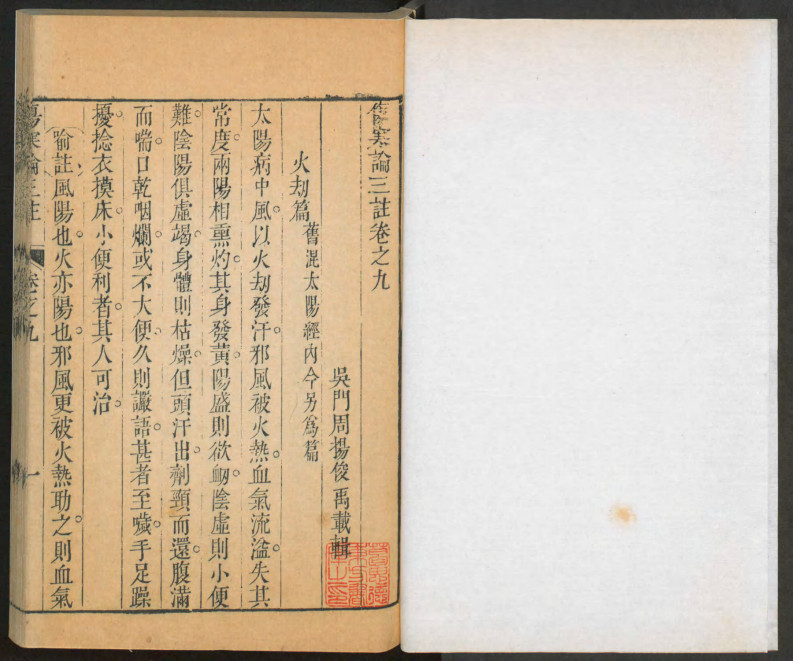 傷寒論三註卷之九
吳門周揚俊禹載輯
火劫篇 舊混太陽經内今另爲篇
太陽病中風。以火劫發汗。邪風被火熱。血氣流溢。失其
常度。兩陽相熏灼。其身發黃。陽盛則欲衂。陰虛則小便
難。陰陽俱虛竭。身體則枯燥。但頭汗出。劑頸而還。腹滿
而喘。口乾咽爛。或不大便。久則讝語。甚者至噦。手足躁
擾。捻衣摸床。小便利者。其人可治。
喻註風陽也。火亦陽也。邪風更被火熱助之。則血氣
傷寒論三註 卷之九 一